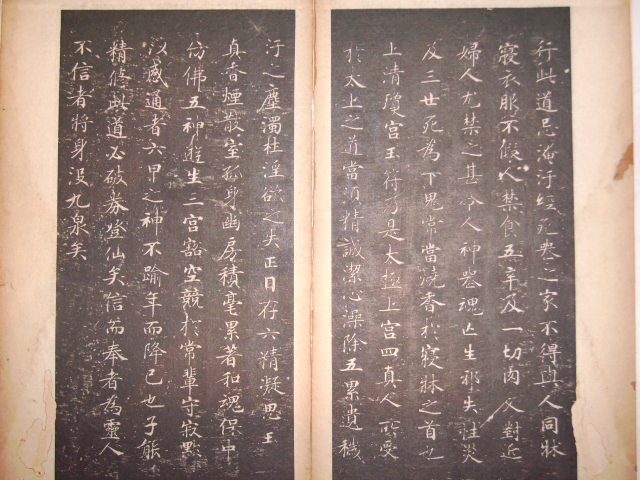 行此道忌淹汙經死喪之家不得與人同牀
寢衣服不假人禁食五辛及一切肉又對近
婦人尤禁之甚令人神喪魂亡生邪失性災
及三世死為下鬼常當燒香於寢牀之首也
上清瓊宮玉符乃是太極上宮四真人所受
於太上之道當須精誠潔心澡除五累遺穢
汙之塵濁杜淫欲之失正目存六精凝思玉
真香煙散室孤身幽房積毫累著和魂保中
仿佛五神遊生三宮豁空競於常輩守寂默
以感通者六甲之神不踰年而降已也子能
精修此道必破券登仙矣信而奉者為靈人
不信者將身沒九泉矣